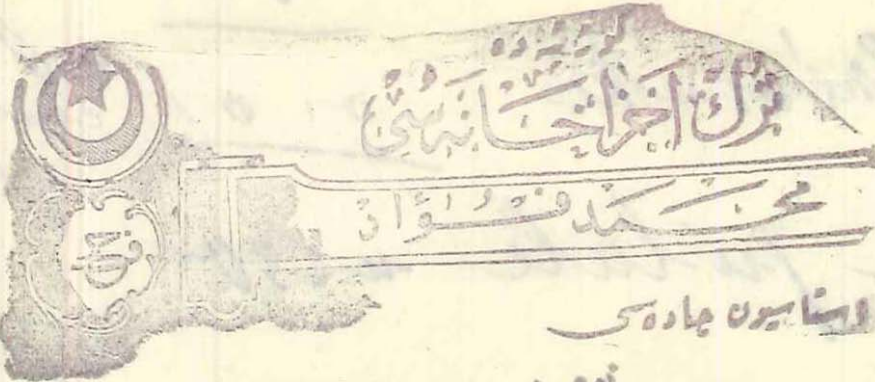 ترك اجزاخانه سی
محمد فؤاد
استاسیون جاده سی